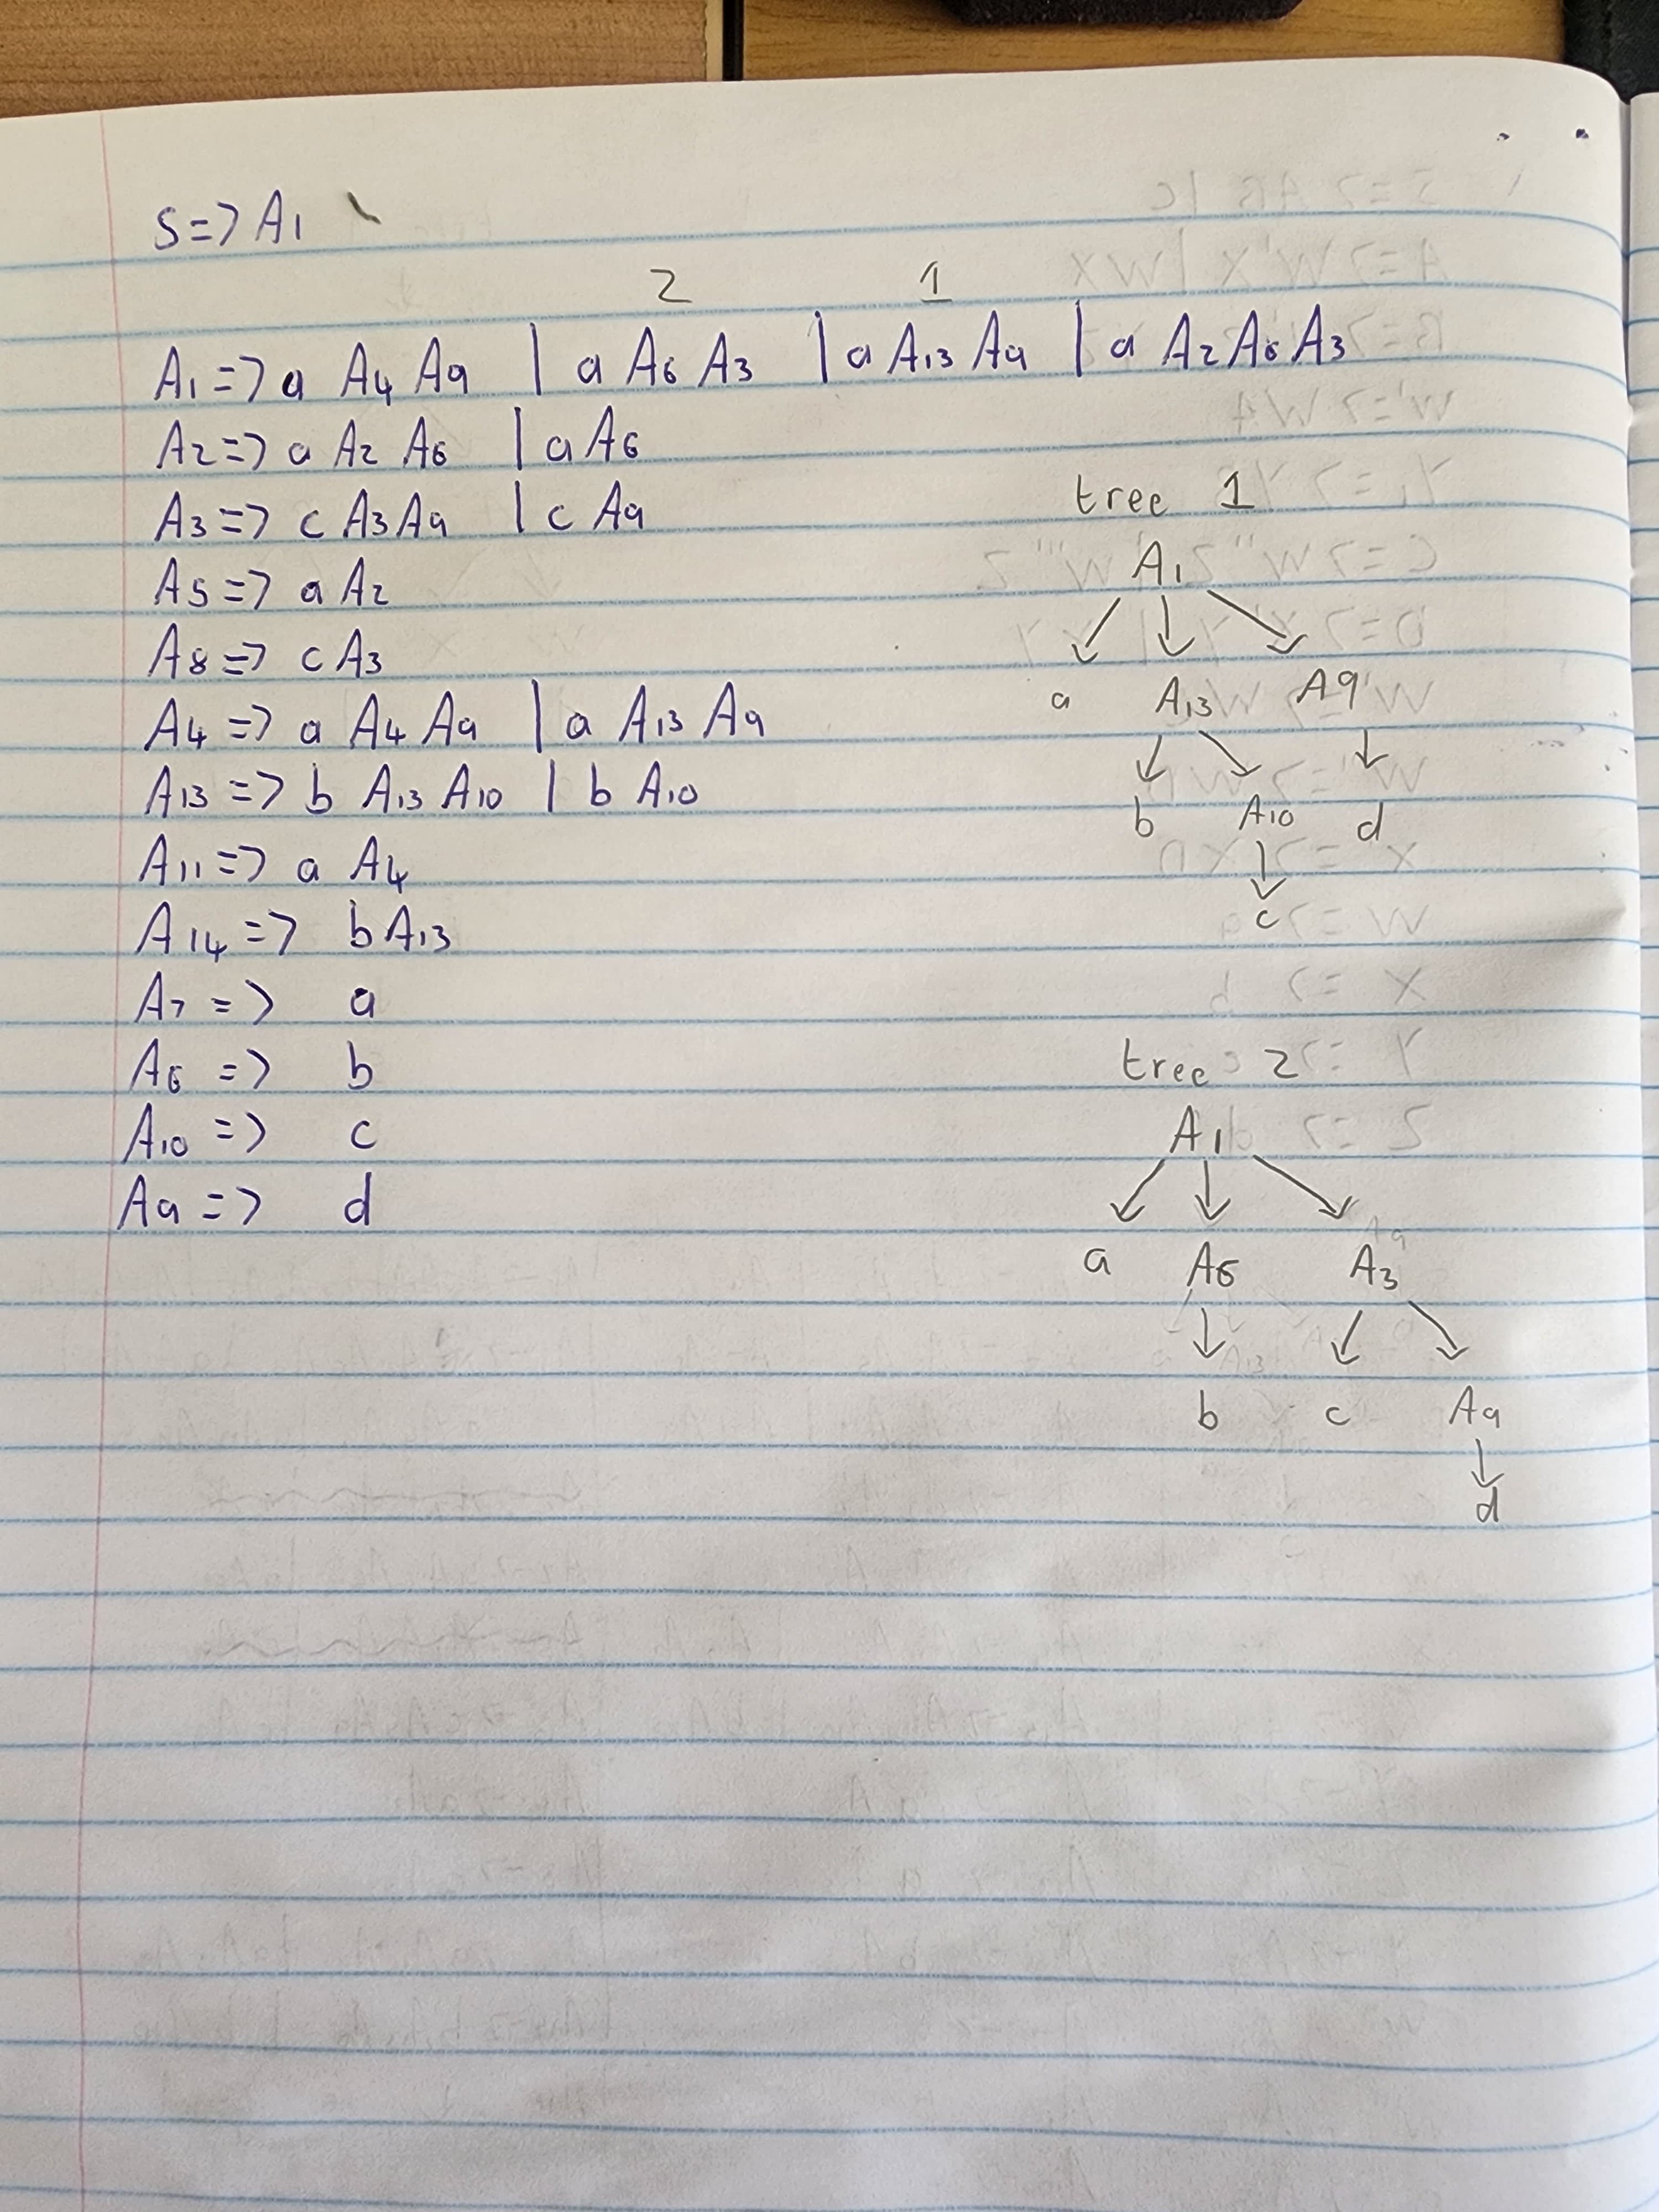 S => A1
2 1
A1 => a A4 A9 | a A6 A3 | a A13 A9 | a A2 A6 A3
A2 => a A2 A6 | a A6
A3 => c A3 A9 | c A9
A5 => a A2
A8 => c A3
A4 => a A4 A9 | a A13 A9
A13 => b A13 A10 | b A10
A11 => a A4
A14 => b A13
A7 => a
A6 => b
A10 => c
A9 => d
tree 1
A1
a A13 A9
b A10 d
c
tree 2
A1
a A6 A3
b c A9
d